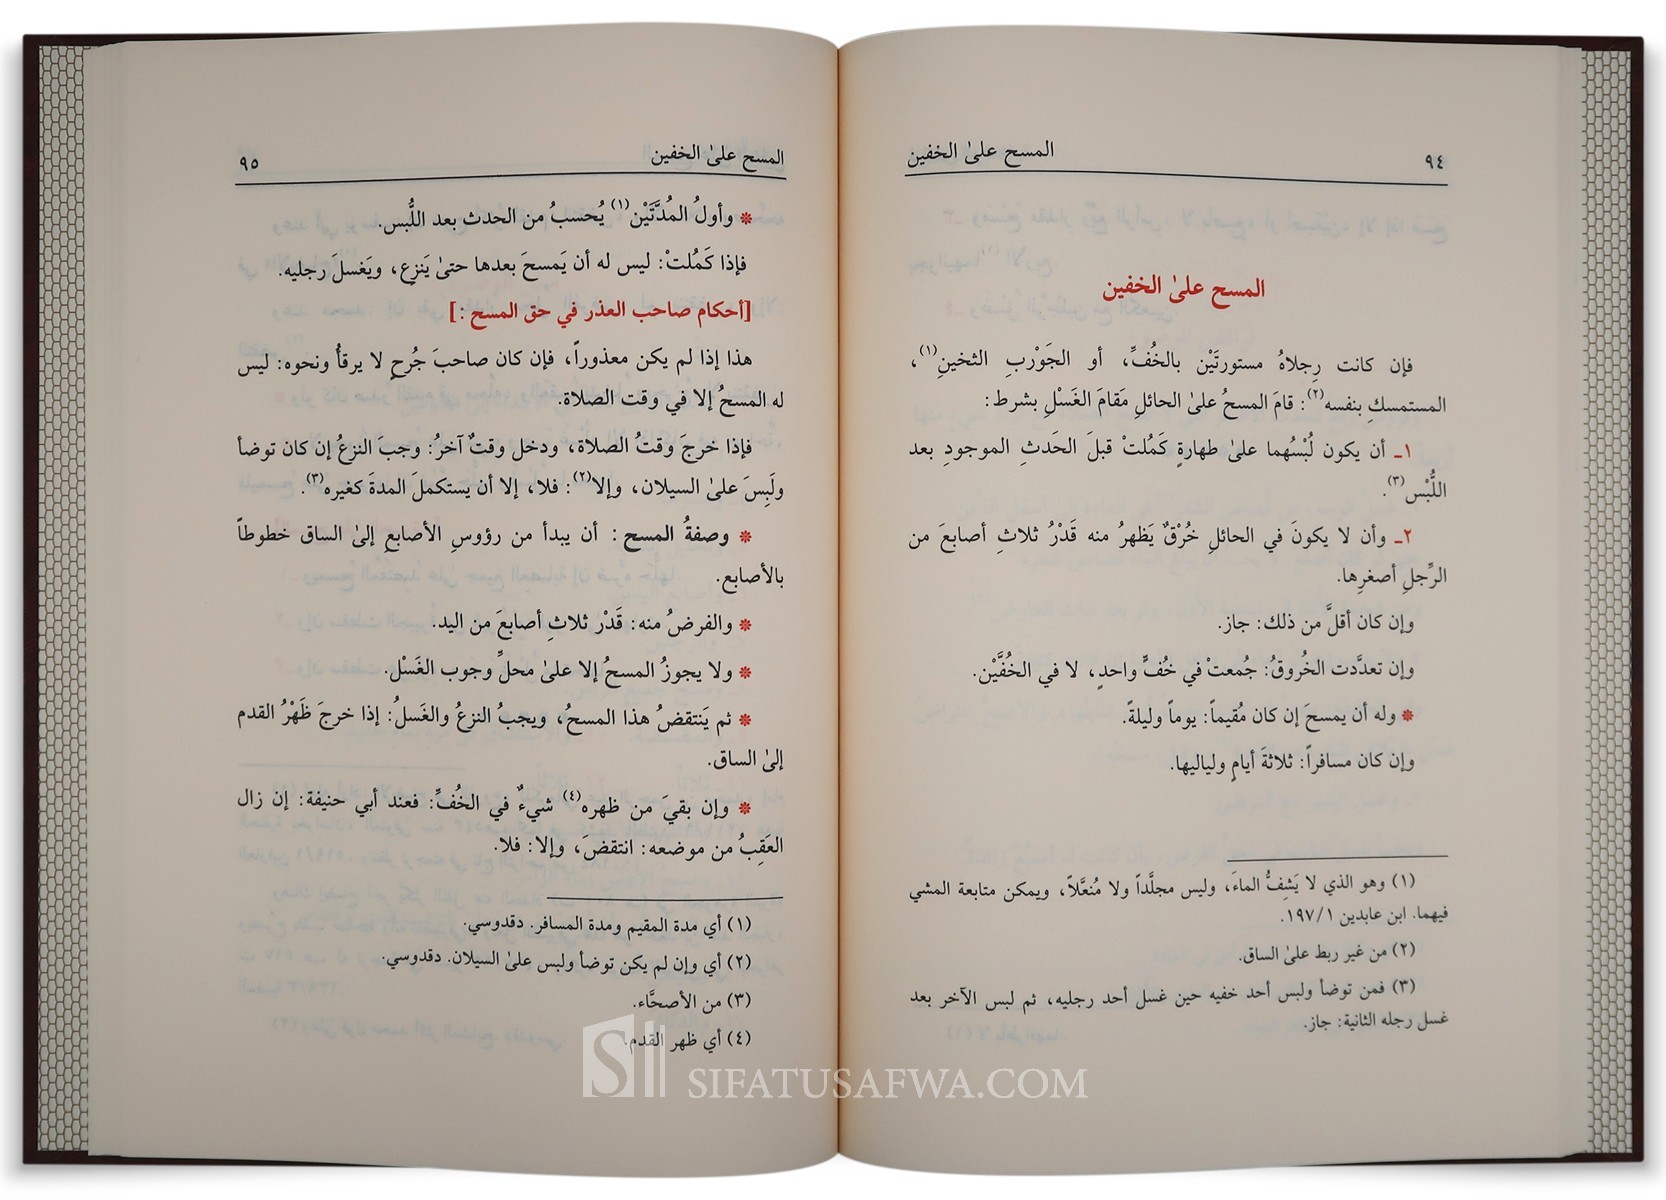 ٩٤
المسح علىٰ الخفين
المسح علىٰ الخفين
فإن كانت رِجلاهُ مستورتَيْن بالخُفِّ، أو الجَوْربِ الثخينِ(١)،
المستمسكِ بنفسه(٢): قامَ المسحُ علىٰ الحائلِ مَقامَ الغَسْلِ بشرط:
١ـ أن يكون لُبْسُهما علىٰ طهارةٍ كَمُلتْ قبلَ الحَدثِ الموجودِ بعد
اللُّبْس(٣).
٢ـ وأن لا يكونَ في الحائلِ خُرْقٌ يَظهرُ منه قَدْرُ ثلاثِ أصابعَ من
الرِّجلِ أصغرِها.
وإن كان أقلَّ من ذلك: جاز.
وإن تعدَّدت الخُروقُ: جُمعتْ في خُفٍّ واحدٍ، لا في الخُفَّيْن.
* وله أن يمسحَ إن كان مُقيماً: يوماً وليلةً.
وإن كان مسافراً: ثلاثةَ أيامٍ ولياليها.
(١) وهو الذي لا يَشِفُّ الماءَ، وليس مجلَّداً ولا مُنعَّلاً، ويمكن متابعة المشي
فيهما. ابن عابدين ١/١٩٧.
(٢) من غير ربط علىٰ الساق.
(٣) فمن توضأ ولبس أحد خفيه حين غسل أحد رجليه، ثم لبس الآخر بعد
غسل رجله الثانية: جاز.
المسح علىٰ الخفين
٩٥
* وأولُ المُدَّتَيْن(١) يُحسبُ من الحدث بعد اللُّبس.
فإذا كَمُلتْ: ليس له أن يَمسحَ بعدها حتىٰ يَنزِع، ويَغسلَ رجليه.
[أحكام صاحب العذر في حق المسح :]
هذا إذا لم يكن معذوراً، فإن كان صاحبَ جُرحٍ لا يرقأُ ونحوه: ليس
له المسحُ إلا في وقت الصلاة.
فإذا خرجَ وقتُ الصلاة، ودخل وقتٌ آخرُ: وجبَ النزعُ إن كان توضأ
ولَبِسَ علىٰ السيلان، وإلا(٢): فلا، إلا أن يستكملَ المدةَ كغيره(٣).
* وصفةُ المسح : أن يبدأ من رؤوسِ الأصابعِ إلىٰ الساق خطوطاً
بالأصابع.
* والفرضُ منه: قَدْر ثلاثِ أصابعَ من اليد.
* ولا يجوزُ المسحُ إلا علىٰ محلِّ وجوب الغَسْل.
* ثم يَنتقضُ هذا المسحُ، ويجبُ النزعُ والغَسلُ: إذا خرجَ ظَهْرُ القدم
إلىٰ الساق.
* وإن بقيَ من ظهره(٤) شيءٌ في الخُفِّ: فعند أبي حنيفة: إن زال
العَقِبُ من موضعه: انتقضَ، وإلا: فلا.
(١) أي مدة المقيم ومدة المسافر. دقدوسي.
(٢) أي وإن لم يكن توضأ ولبس علىٰ السيلان. دقدوسي.
(٣) من الأصحَّاء.
(٤) أي ظهر القدم.
SIFATUSAFWA.COM